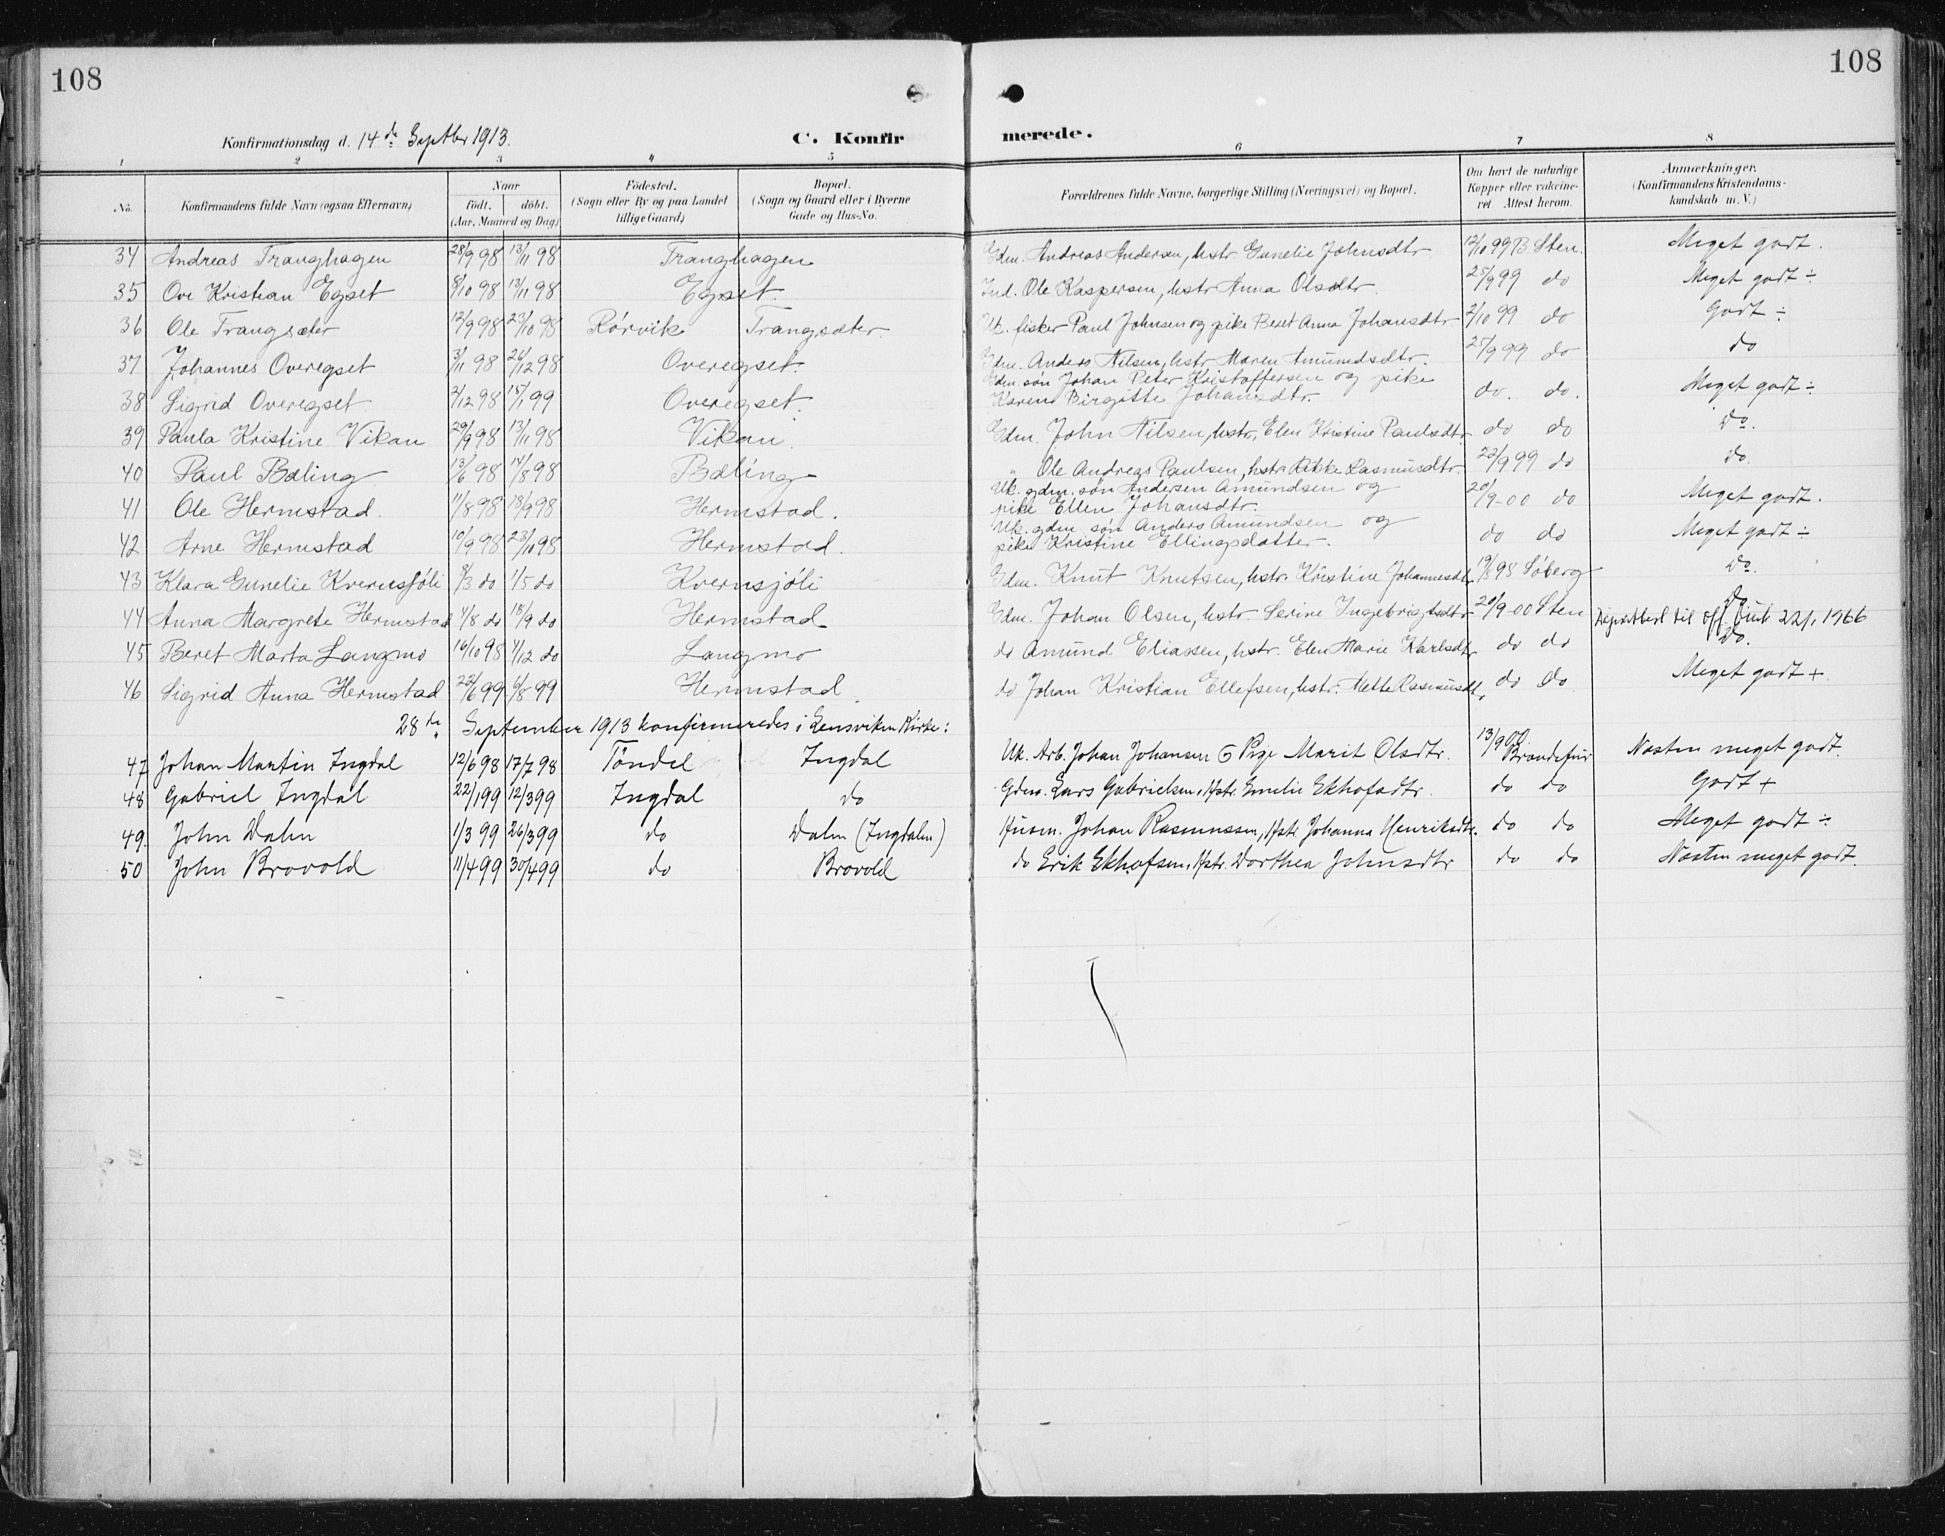 108
108
Konfirmationsdag d. 14de Septbr 1913.
C. Konfirmerede.
1 2 3 4 5 6 7 8
No. Konfirmandens fulde Navn (ogsaa Efternavn) Naar født. døbt. (Aar, Maaned og Dag) Fødested. (Sogn eller By og paa Landet tillige Gaard) Bopæl. (Sogn og Gaard eller i Byerne Gade og Hus-No. Forældrenes fulde Navne, borgerlige Stilling (Næringsvei) og Bopæl. Om havt de naturlige Kopper eller vakcineret. Attest herom. Anmærkninger. (Konfirmandens Kristendomskundskab m. V.)
34 Andreas Tranghagen 28/9 98 13/11 98 Tranghagen Gdm. Andreas Andersen, hstr. Gunelie Johnsdtr 12/10 99 B. Sten. Meget godt.
35 Ove Kristian Egset 8/10 98 13/11 98 Egset. Ind. Ole Kaspersen, hstr Anna Olsdtr. 25/9 99 do Meget godt ÷
36 Ole Trangsæter 12/9 98 23/10 98 Rörvik Trangsæter Uk. fisker Paul Johnsen og pike Beret Anna Johansdtr 2/10 99 do Godt ÷
37 Johannes Overegset 3/11 98 26/12 98 Overegset. Gdm. Anders Nilsen, hstr. Maren Amundsdtr. 25/9 99 do do
38 Sigrid Overegset 2/12 98 15/1 99 Overegset. Gdm. søn Johan Peter Kristoffersen og pike
Karen Birgitte Johansdtr. do. do. Meget godt ÷
39 Paula Kristine Vikan 29/9 98 13/11 98 Vikan. Gdm. John Nilsen, hstr. Elen Kristine Paulsdtr do do Do.
40 Paul Bæling 13/6 98 14/8 98 Bæling " Ole Andreas Paulsen, hstr. Rikke Rasmusdtr. 22/9 99 do do.
41 Ole Hermstad. 11/8 98 18/9 98 Hermstad. Uk. gdm. søn Andersen Amundsen og
pike Ellen Johansdtr. 20/9-00 do Meget godt.
42 Arne Hermstad 10/9 98 23/10 98 Hermstad. Uk. gdm. søn Anders Amundsen og
pike Kristine Ellingsdatter. do do Meget godt ÷
43 Klara Gunelie Kvernsjöli 8/3 do 1/5 do Kvernsjöli Gdm. Knut Knutsen, hstr. Kristine Johannesdtr 19/8 98 Söberg Do.
44 Anna Margrete Hermstad 4/8 do 18/9 do Hermstad Gdm. Johan Olsen, hstr. Serine Ingebrigtsdtr 20/9-00 Sten Do.
til off. bruk 22/1 1966
45 Beret Marta Langmo 16/10 98 4/12 do Langmo do Amund Eliassen, hstr. Elen Marie Karlsdtr do do Do.
46 Sigrid Anna Hermstad 22/6 99 6/8 99 Hermstad do Johan Kristian Ellefsen, hstr. Mette Rasmusdtr, do do Meget godt +
28de September 1913 konfirmeredes i Lensviken Kirke:
47 Johan Martin Ingdal 12/6 98 17/7 98 Töndel Ingdal Uk. Arb. Johan Johansen & Pige Marit Olsdtr. 13/9 00 Brandtfur Næsten meget godt.
48 Gabriel Ingdal 22/1 99 12/3 99 Ingdal do Gdm. Lars Gabrielsen, Hstr. Emelie Ekhofsdtr. do do Godt +
49. John Dalen 1/3 99 26/3 99 do Dalen (Ingdalen) Husm. Johan Rasmussen, Hstr Johanna Henriksdtr. do do Meget godt ÷
50 John Brovold 11/4 99 30/4 99 do Brovold do Erik Ekhofsen, Hstr. Dorthea Johnsdtr do do Næsten meget godt.